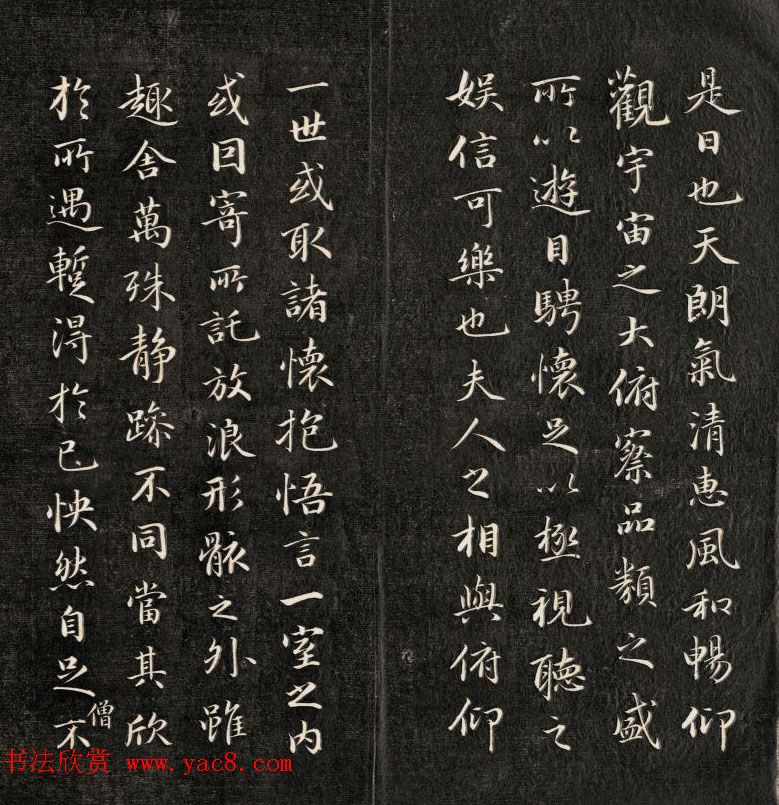 是日也天朗氣清惠風和暢仰
觀宇宙之大俯察品類之盛
所以遊目騁懷足以極視聽之
娛信可樂也夫人之相與俯仰
一世或取諸懷抱悟言一室之內
或因寄所託放浪形骸之外雖
趣舍萬殊静躁不同當其欣
於所遇蹔得於己怏然自足不
僧
书法欣赏 www.yac8.com